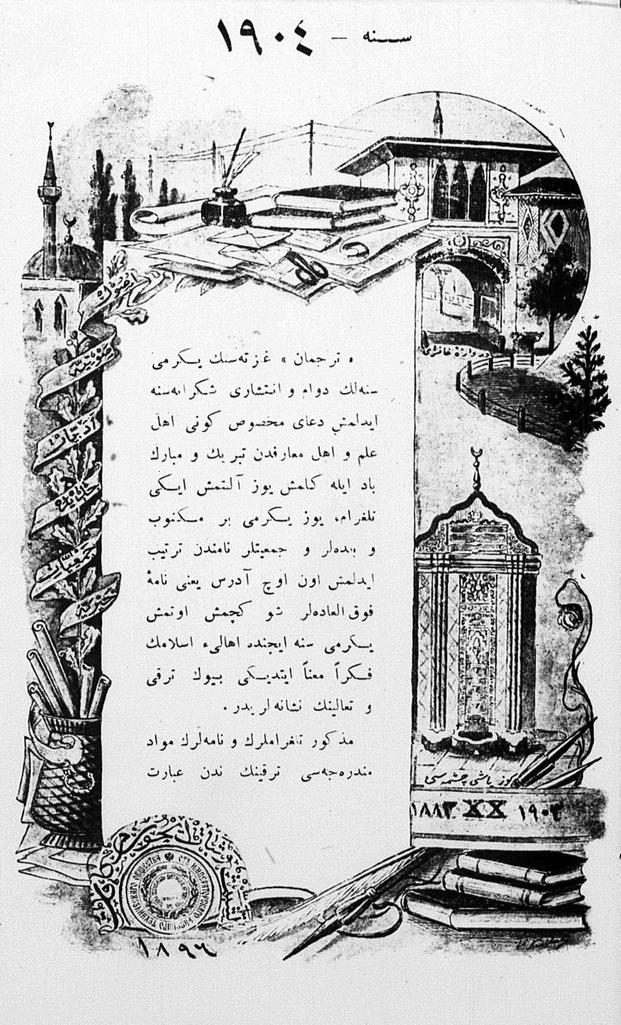 سنه — ١٩٠٤
« ترجمان » غزته‌سنك يـكرمى
سنه‌لك دوام و انتشارى شكرانه‌سنه
ايدلمش دعاى مخصوص كونى اهل
علم و اهل معارفدن تبريك و مبارك
باد ايله كلمش يوز آلتمش ايكى
تلغرام، يوز يـكرمى بر مـكتوب
و بلده‌لر و جمعيتلر نامندن ترتيب
ايدلمش اون اوچ آدرس يعنى نامهٔ
فوق العاده‌لر شو كچمش اوتمش
يـكرمى سنه ايچنده اهالىء اسلامك
فـكراً معناً ايتديـكى بيوك ترقى
و تعالينك نشانه‌لريدر .
مذكور تلغراملرك و نامه‌لرك مواد
مندرجه‌سى ترقينك ندن عبارت
كوز ياشى چشمه‌سى
١٨٨٣ XX ١٩٠٣
١٨٩٦